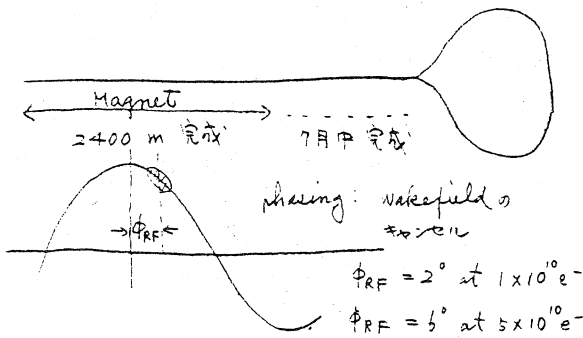 Magnet
2400 m 完成
7月中 完成
phasing: wakefieldの
キャンセル
→ϕRF←
ϕRF = 2° at 1×10^10 e-
ϕRF = 6° at 5×10^10 e-